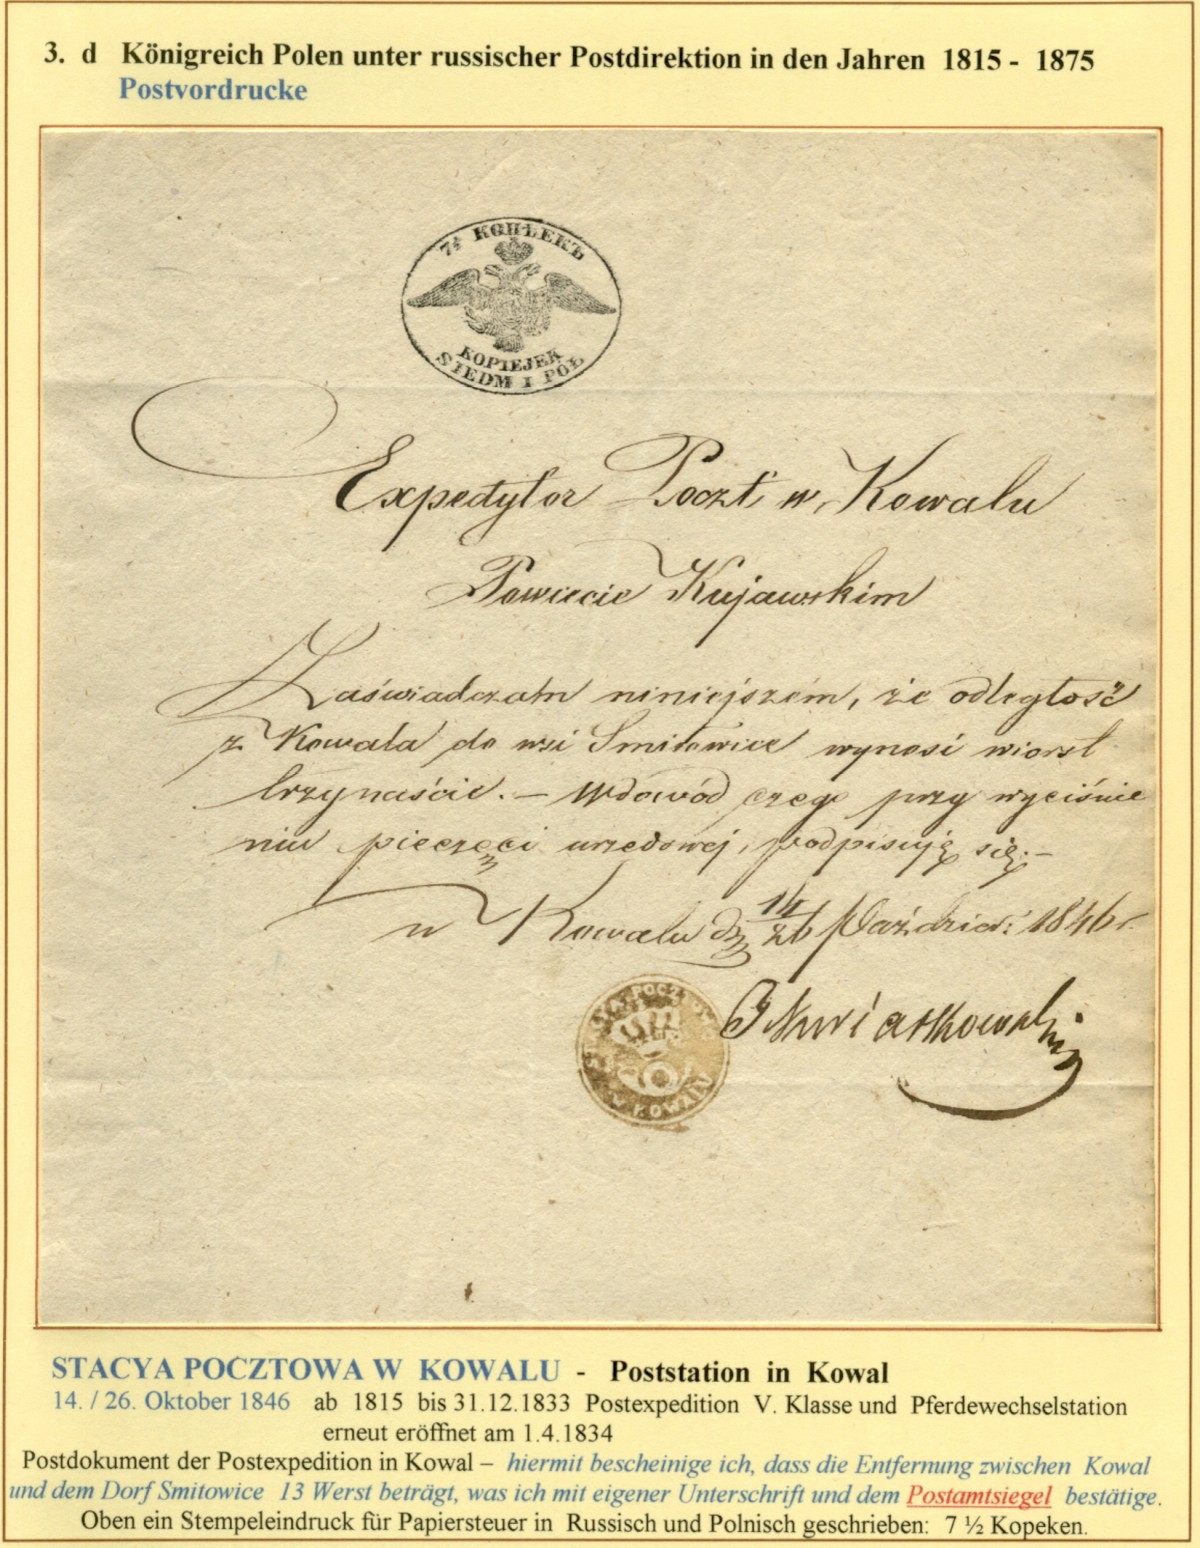 3. d Königreich Polen unter russischer Postdirektion in den Jahren 1815 - 1875
Postvordrucke
7½ КОПѢЕКЪ
KOPIEJEK
SIEDM I PÓŁ
Expedytor Poczt w Kowalu
Powiecie Kujawskim
Zaświadczam niniejszém, że odległość
z Kowala do wsi Smiłowice wynosi wiorst
trzynaście. – W dowód czego przy wyciśnie
niu pieczęci urzędowej, podpisuję się. –
w Kowalu d. 14/26 Paździer: 1846 r.
STACYA POCZTOWA
W KOWALU
STACYA POCZTOWA W KOWALU - Poststation in Kowal
14. / 26. Oktober 1846 ab 1815 bis 31.12.1833 Postexpedition V. Klasse und Pferdewechselstation
erneut eröffnet am 1.4.1834
Postdokument der Postexpedition in Kowal – hiermit bescheinige ich, dass die Entfernung zwischen Kowal
und dem Dorf Smitowice 13 Werst beträgt, was ich mit eigener Unterschrift und dem Postamtsiegel bestätige.
Oben ein Stempeleindruck für Papiersteuer in Russisch und Polnisch geschrieben: 7 ½ Kopeken.